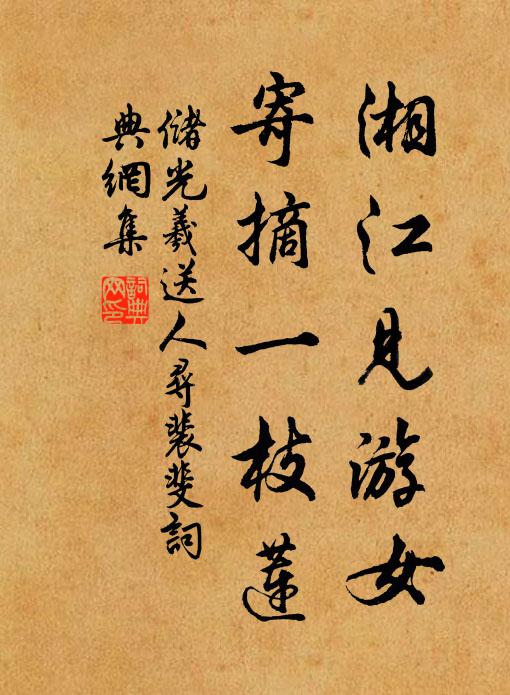 湘江见游女
寄摘一枝蓮
儲光羲送人尋裴斐詞
典網集
詞典网印